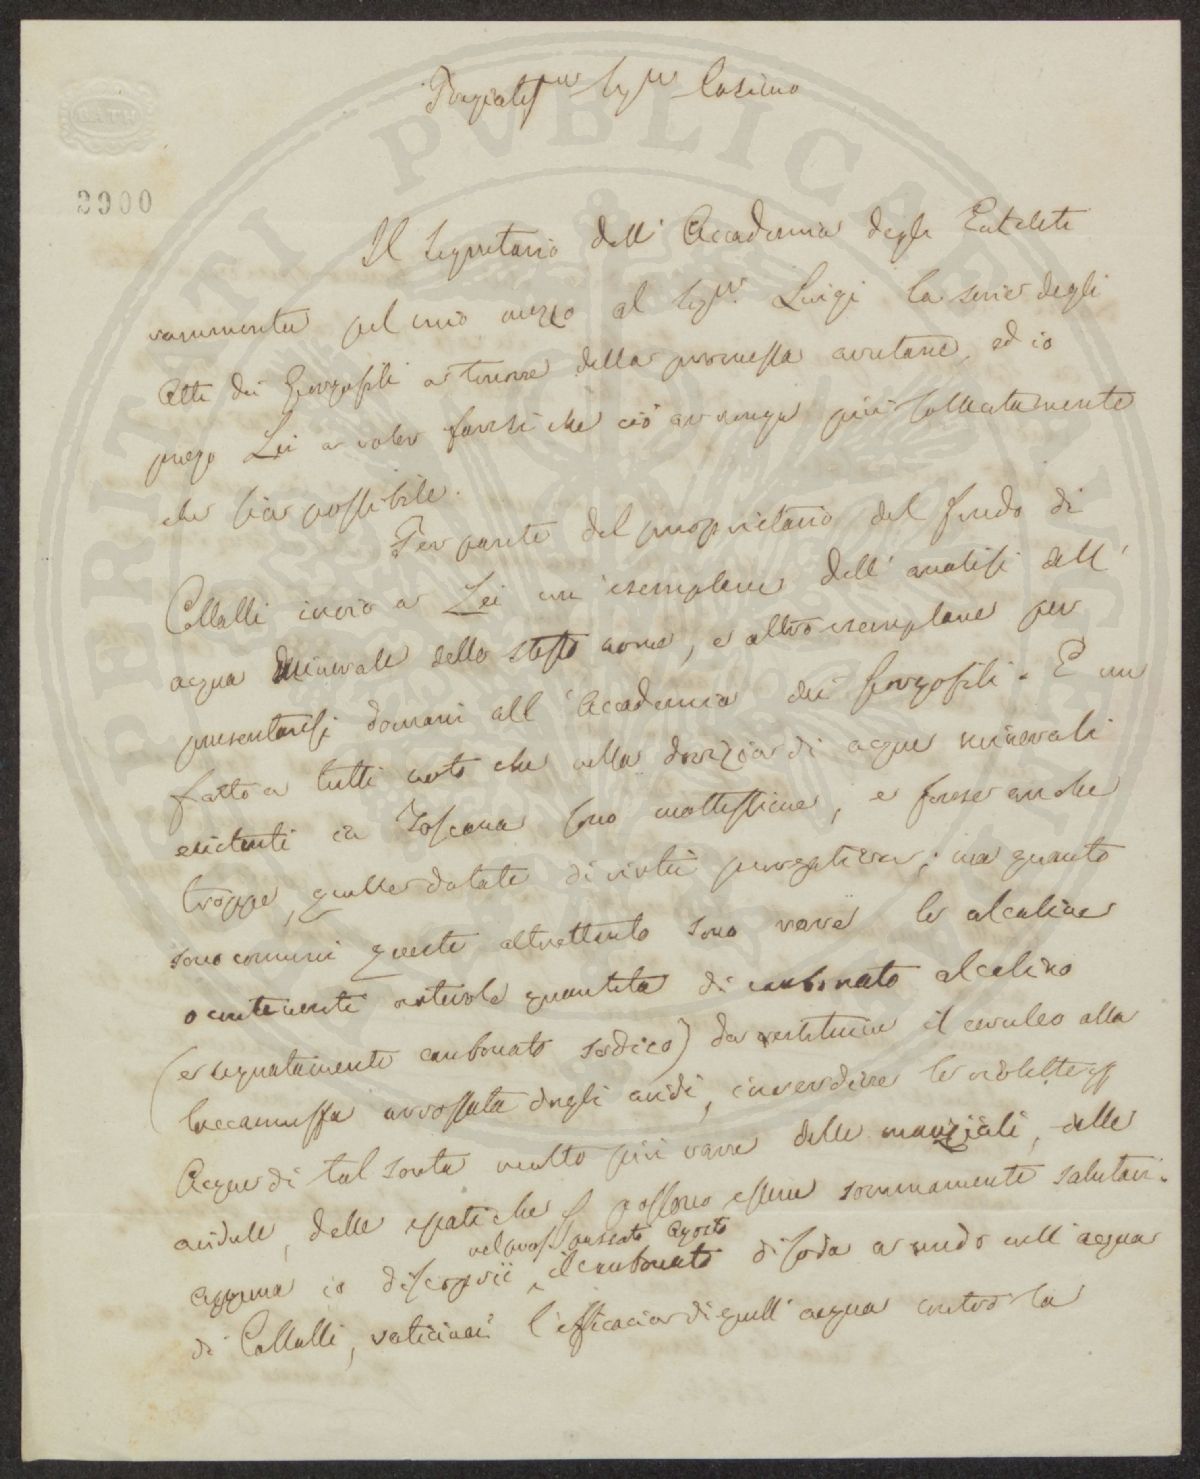 BATH
2900
Pregiatis.mo Sig.re Cosimo
Il Segretario dell' Accademia degli Euteleti
rammenta pel mio mezzo al Sig.re Luigi la serie degli
Atti dei Georgofili a tenore della promessa avutane, ed io
prego Lei a voler far sì che ciò avvenga più sollecitamente
che sia possibile.
Per parte del proprietario del fondo di
Collalli invio a Lei un esemplare dell' analisi dell'
acqua minerale dello stesso nome, e altro esemplare per
presentarsi domani all' Accademia dei Georgofili. È un
fatto a tutti noto che nella dovizia di acque minerali
esistenti in Toscana sono moltissime, e forse anche
troppe, quelle dotate di virtù purgativa; ma quanto
sono comuni queste altrettanto sono rare le alcaline
o contenenti notevole quantità di carbonato alcalino
(e segnatamente carbonato sodico) da restituire il ceruleo alla
laccamuffa arrossata dagli acidi, inverdire le violette
Acque di tal sorta molto più rare delle marziali, delle
acidule, delle epatiche possono essere sommamente salutari.
nel pross. passato Agosto
Appena io discoprii il carbonato di soda a nudo nell' acqua
di Collalli, vaticinai l'efficacia di quell' acqua contro la